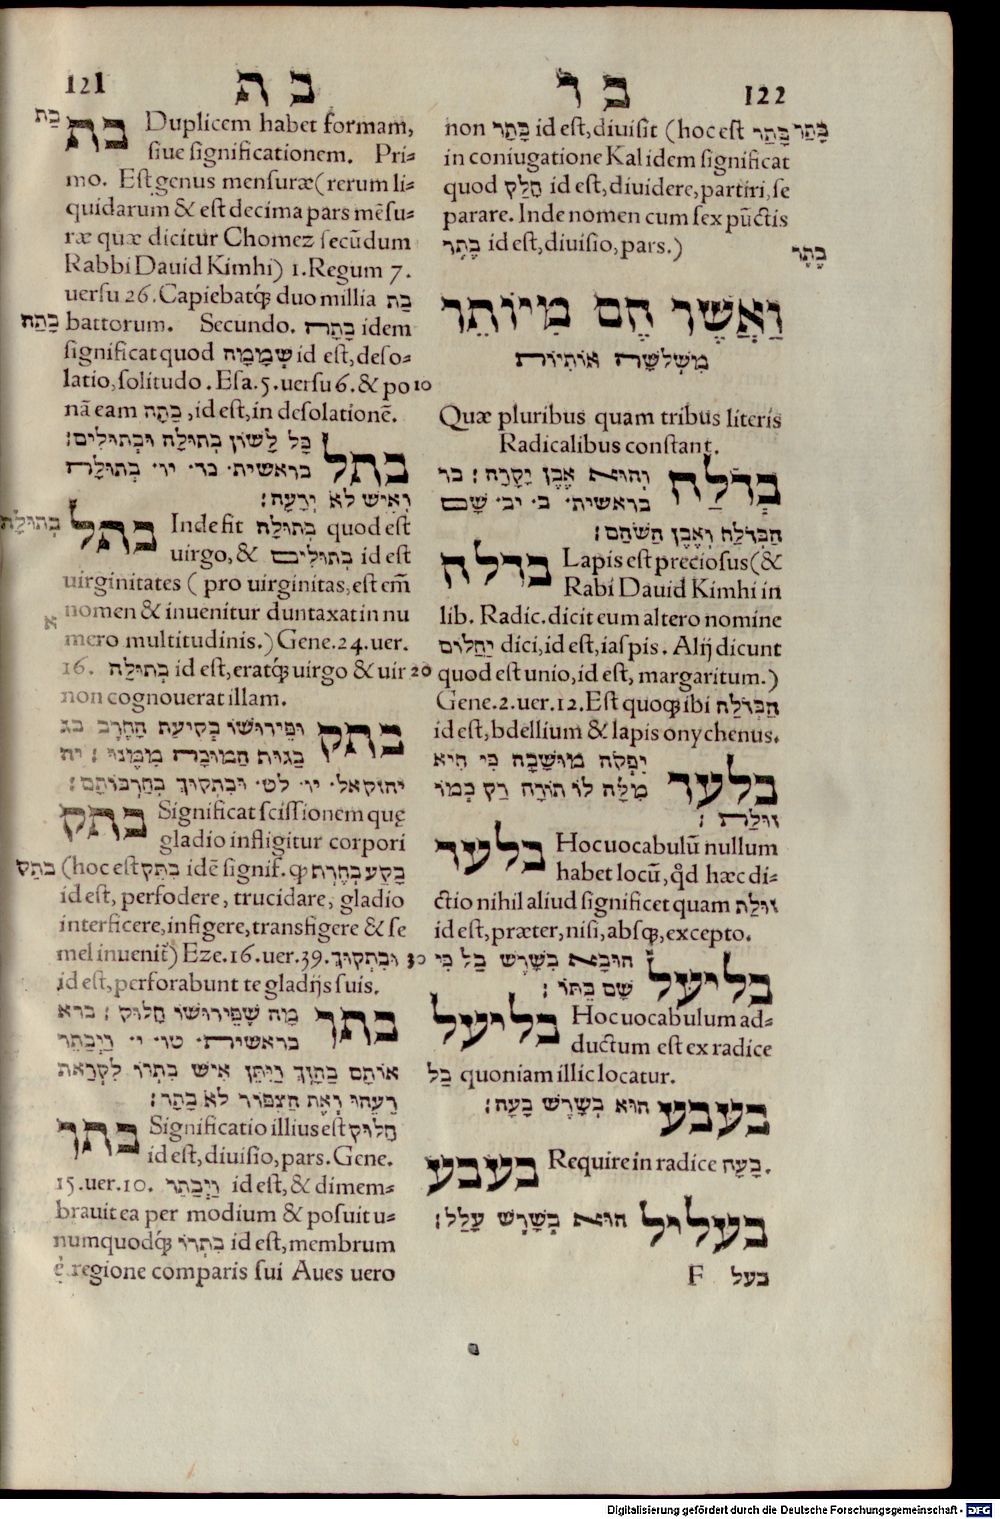 121 בת
בת Duplicem habet formam,
siue significationem. Pri-
mo. Est genus mensuræ (rerum li-
quidarum & est decima pars mēsu-
ræ quæ dicitur Chomez secūdum
Rabbi Dauid Kimhi) 1. Regum 7.
uersu 26. Capiebatq́; duo millia בַּת
battorum. Secundo. בָּתָה idem
significat quod שְׁמָמָה id est, deso-
latio, solitudo. Esa. 5. uersu 6. & po
nā eam בָתָה, id est, in desolationē.
בתל כָּל לָשׁוֹן בְּתוּלָה וּבְתוּלִים׃
בראשית· כד· יו· בְּתוּלָה
וְאִישׁ לֹא יְדָעָהּ׃
בתל Inde fit בְּתוּלָה quod est
uirgo, & בְּתוּלִים id est
uirginitates ( pro uirginitas, est em̄
nomen & inuenitur duntaxat in nu
mero multitudinis.) Gene. 24. uer.
16. בְּתוּלָה id est, eratq́; uirgo & uir
non cognouerat illam.
בתק וּפֵירוּשׁוֹ בְּקִיעַת הַחֶרֶב
יחזקאל· יו· לט· וּבִתְקוּךְ בְּחַרְבוֹתָם׃
בתק Significat scissionem quę
gladio infligitur corpori
(hoc est בתק idē signif. ꝙ בָּקַע בְּחֶרֶב
id est, perfodere, trucidare, gladio
interficere, infigere, transfigere & se
mel inuenit̄) Eze. 16. uer. 39. וּבִתְקוּךְ
id est, perforabunt te gladijs suis.
בתר בַּמֶּה שֶׁפֵּירוּשׁוֹ חִלּוּק׃
בראשית· טו· י· וַיְבַתֵּר
אוֹתָם בַּתָּוֶךְ וַיִּתֵּן אִישׁ בִּתְרוֹ לִקְרַאת
רֵעֵהוּ וְאֶת הַצִפּוֹר לֹא בָתָר׃
בתר Significatio illius est חִלּוּק
id est, diuisio, pars. Gene.
15. uer. 10. וַיְבַתֵּר id est, & dimem-
brauit ea per modium & posuit u-
numquodq́; בִּתְרוֹ id est, membrum
ę regione comparis sui Aues uero
בַּת
בָּתָה
בְּתוּלָה
א
בתק
10
20
30
בר 122
non בָּתַר id est, diuisit (hoc est בָּתַר
in coniugatione Kal idem significat
quod חָלַק id est, diuidere, partiri, se
parare. Inde nomen cum sex pūctis
בֶּתֶר id est, diuisio, pars.)
בָּתַר
בֶּתֶר
וַאֲשֶׁר הֶם מִיוֹתֵר
מִשְּׁלֹשָׁה אוֹתִיוֹת
Quæ pluribus quam tribus literis
Radicalibus constant.
בְּדֹלַח וְהוּא אֶבֶן יְקָרָה׃
בראשית· ב· יב· שָׁם
הַבְּדֹלַח וְאֶבֶן הַשֹּׁהַם׃
בדלח Lapis est preciosus (&
Rabi Dauid Kimhi in
lib. Radic. dicit eum altero nomine
יַהֲלוֹם dici, id est, iaspis. Alij dicunt
quod est unio, id est, margaritum.)
Gene. 2. uer. 12. Est quoq; ibi הַבְּדֹלַח
id est, bdellium & lapis onychenus.
בלעד
מִלָּה לוֹ תוֹרָה רַק כְּמוֹ
זוּלַת׃
בלעד Hoc uocabulū nullum
habet locū, q̊d hæc di-
ctio nihil aliud significet quam זוּלַת
id est, præter, nisi, absq;, excepto.
בליעל הוּבָא בְּשֹׁרֶשׁ בַּל כִּי
שָׁם בֵּיתוֹ׃
בליעל Hoc uocabulum ad-
ductum est ex radice
בַּל quoniam illic locatur.
בעבע הוּא בְּשֹׁרֶשׁ בָּעָה׃
בעבע Require in radice בָּעָה.
בעליל הוּא בְּשֹׁרֶשׁ עָלַל׃
F בעל
Digitalisierung gefördert durch die Deutsche Forschungsgemeinschaft - DFG